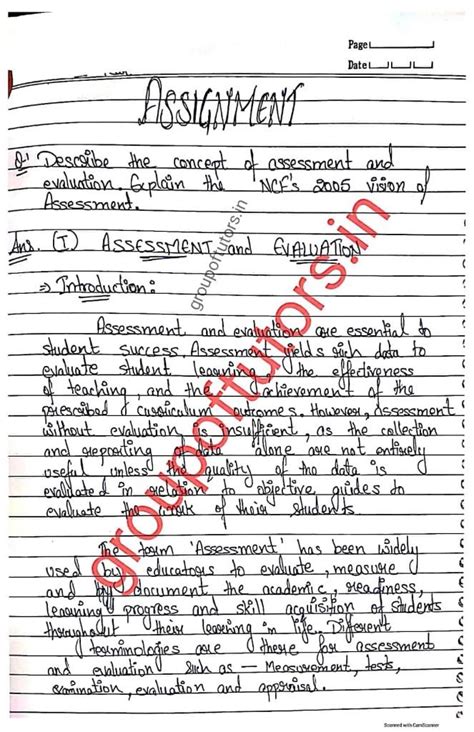 Page
Date
ASSIGNMENT
Q:1 Describe the concept of assessment and
evaluation. Explain the NCF's 2005 vision of
Assessment.
Ans. (I) ASSESSMENT and EVALUATION
⇒ Introduction:
Assessment and evaluation are essential to
student success, Assessment yields rich data to
evaluate student learning, the effectiveness
of teaching, and the achievement of the
prescribed curriculum outcomes. However, Assessment
without evaluation is insufficient, as the collection
and reporting of data alone are not entirely
useful unless the quality of the data is
evaluated in relation to objective guides to
evaluate the work of their students.
The term 'Assessment' has been widely
used by educators to evaluate, measure
and document the academic, readiness,
learning progress and skill acquisition of students
throughout their learning in life. Different
terminologies are there for assessment
and evaluation such as — Measurement, tests,
examination, evaluation and appraisal.
groupoftutors.in
groupoftutors.in
Scanned with CamScanner